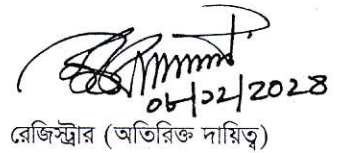 ০৮/০২/২০২৪
রেজিস্ট্রার (অতিরিক্ত দায়িত্ব)